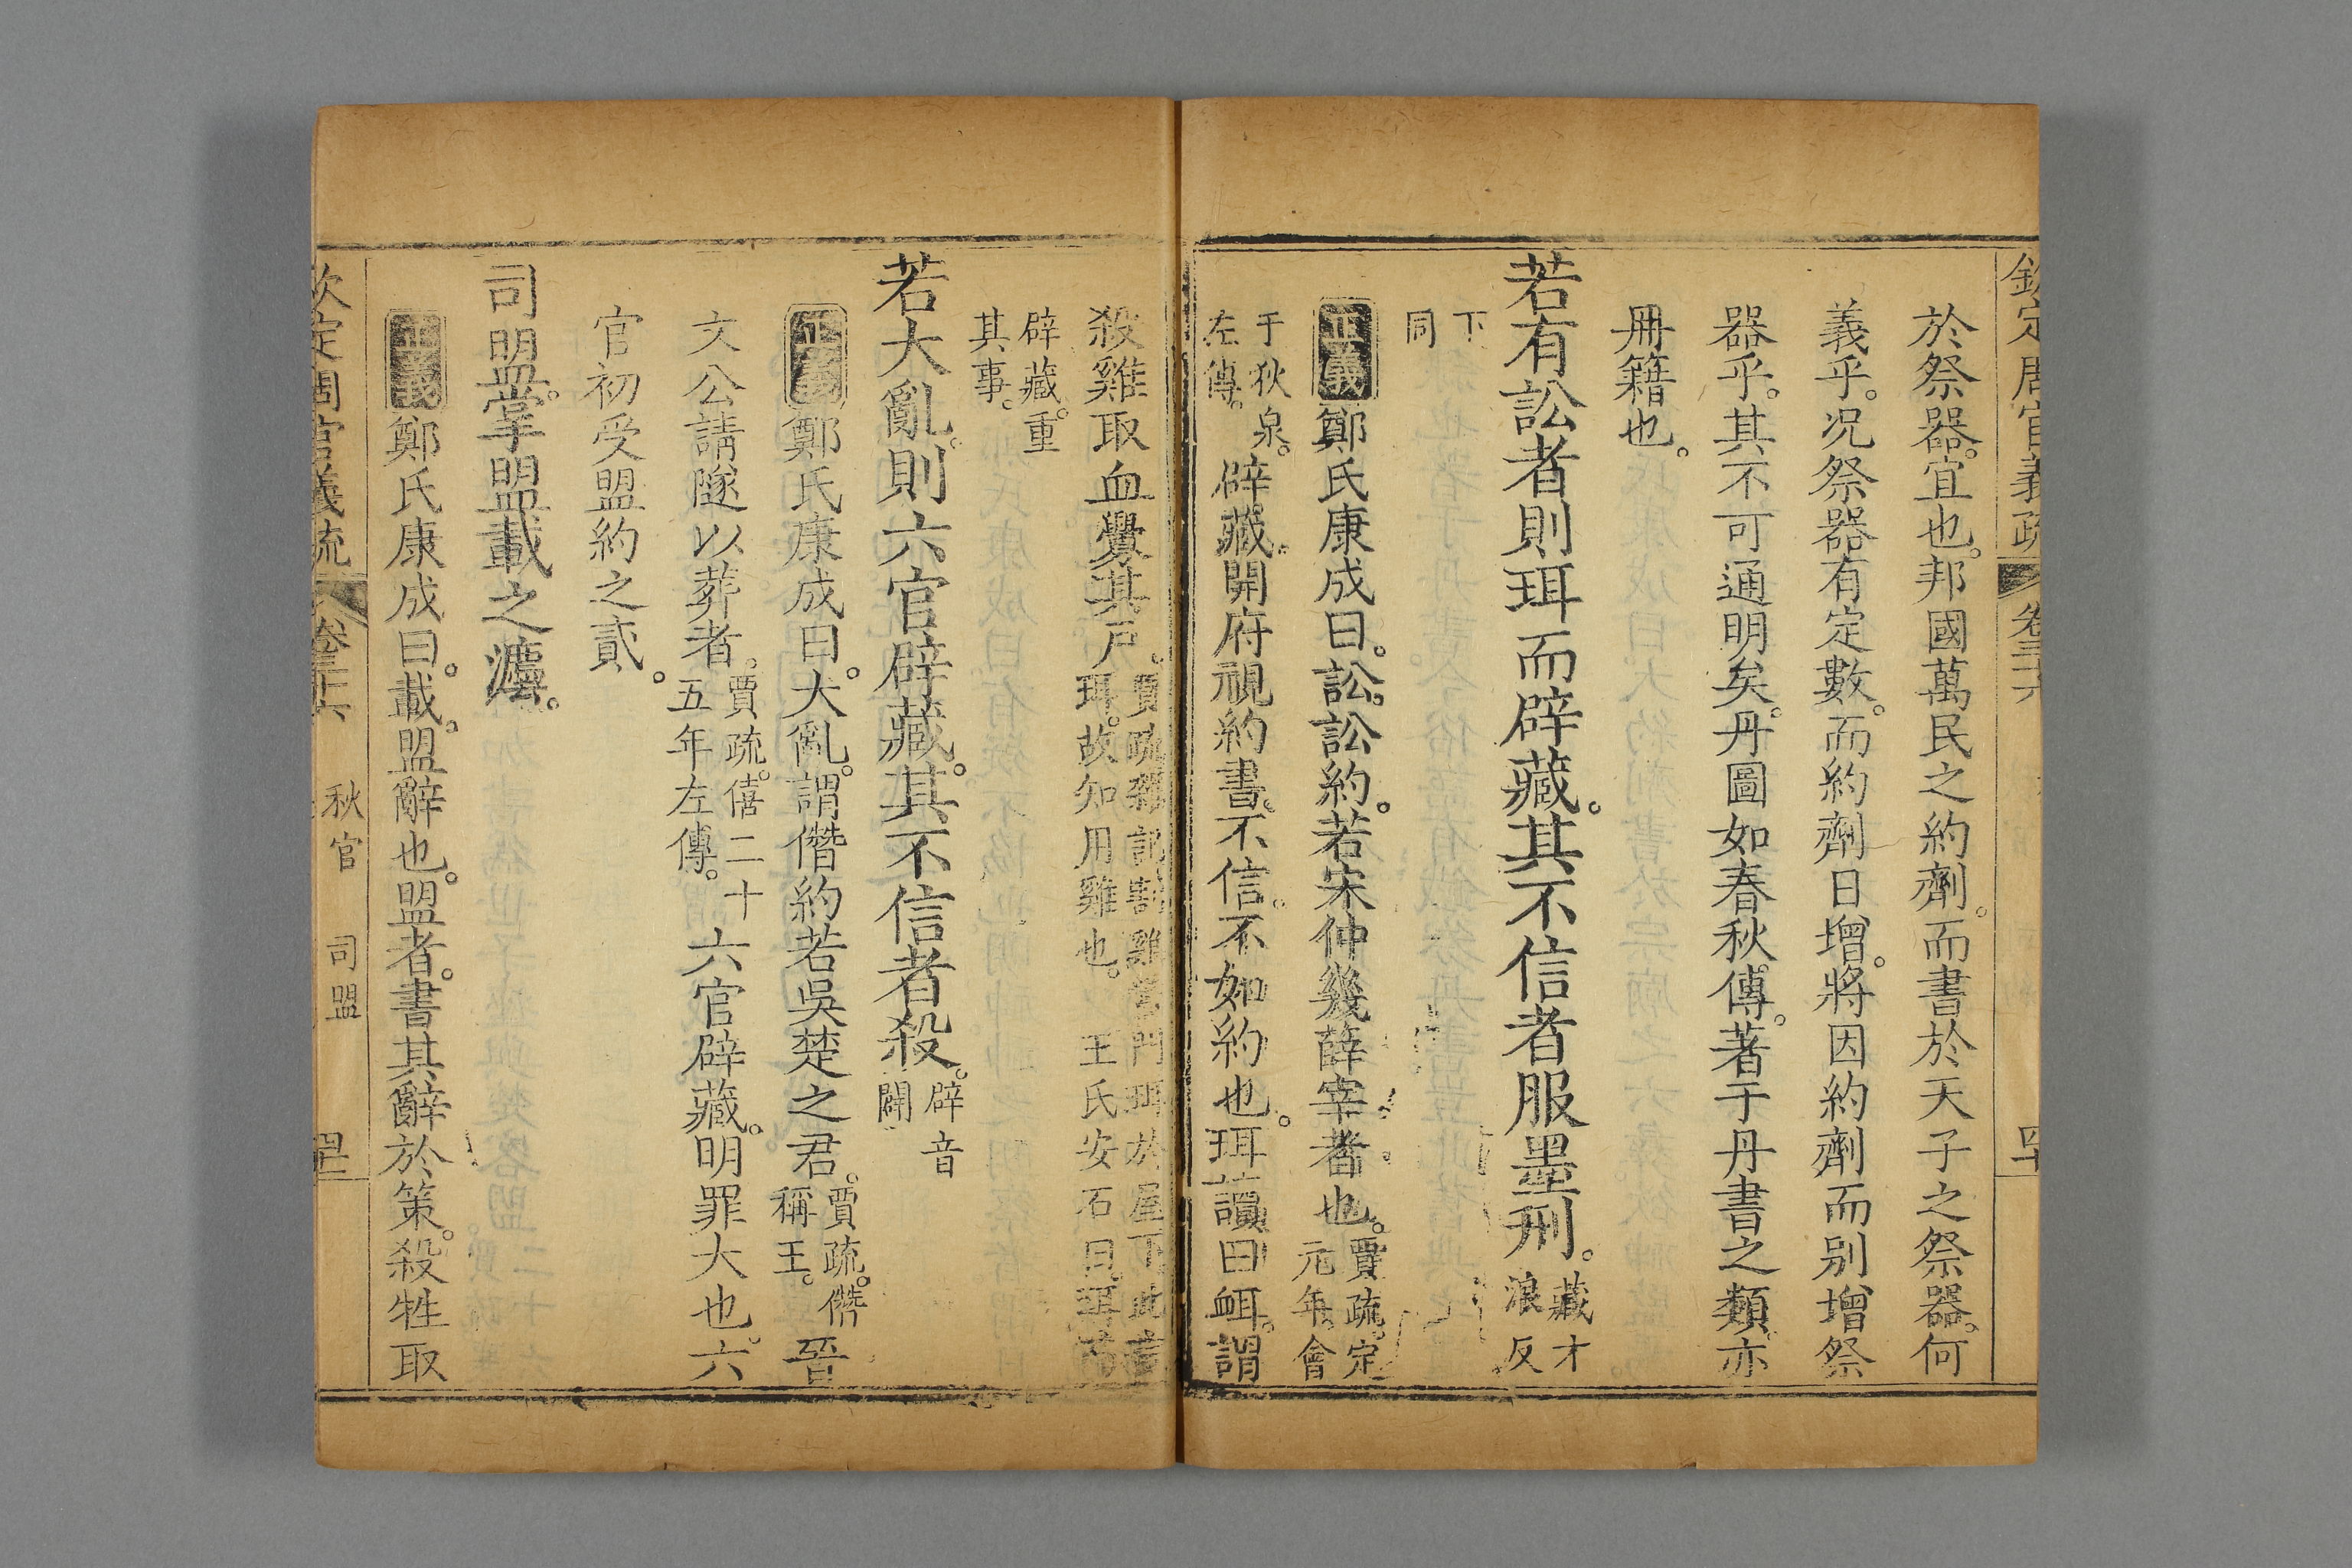 於祭器。宜也。邦國萬民之約劑。而書於天子之祭器。何
義乎。况祭器有定數。而約劑日增。將因約劑而别增祭
器乎。其不可通明矣。丹圖如春秋傳。著于丹書之類。亦
冊籍也。
若有訟者則珥而辟藏。其不信者服墨刑。藏才浪反
下同
正義鄭氏康成曰。訟。訟約。若宋仲幾薛宰者也。賈疏。定元年。會
于狄泉。左傳。辟藏。開府視約書。不信。不如約也。珥讀曰衈。謂
殺雞取血釁其戶。賈疏雜記割雞當門珥於屋下此言珥。故知用雞也。王氏安石曰。珥而
辟藏。重其事。
若大亂。則六官辟藏。其不信者殺。辟音闢
正義鄭氏康成曰。大亂。謂僭約若吳楚之君。賈疏。僭稱王。晉
文公請隧以葬者。賈疏。僖二十五年左傳。六官辟藏。明罪大也。六
官初受盟約之貳。
司盟。掌盟載之灋。
正義鄭氏康成曰。載。盟辭也。盟者。書其辭於策。殺牲取
欽定周官義疏 卷三十六 秋官 司盟